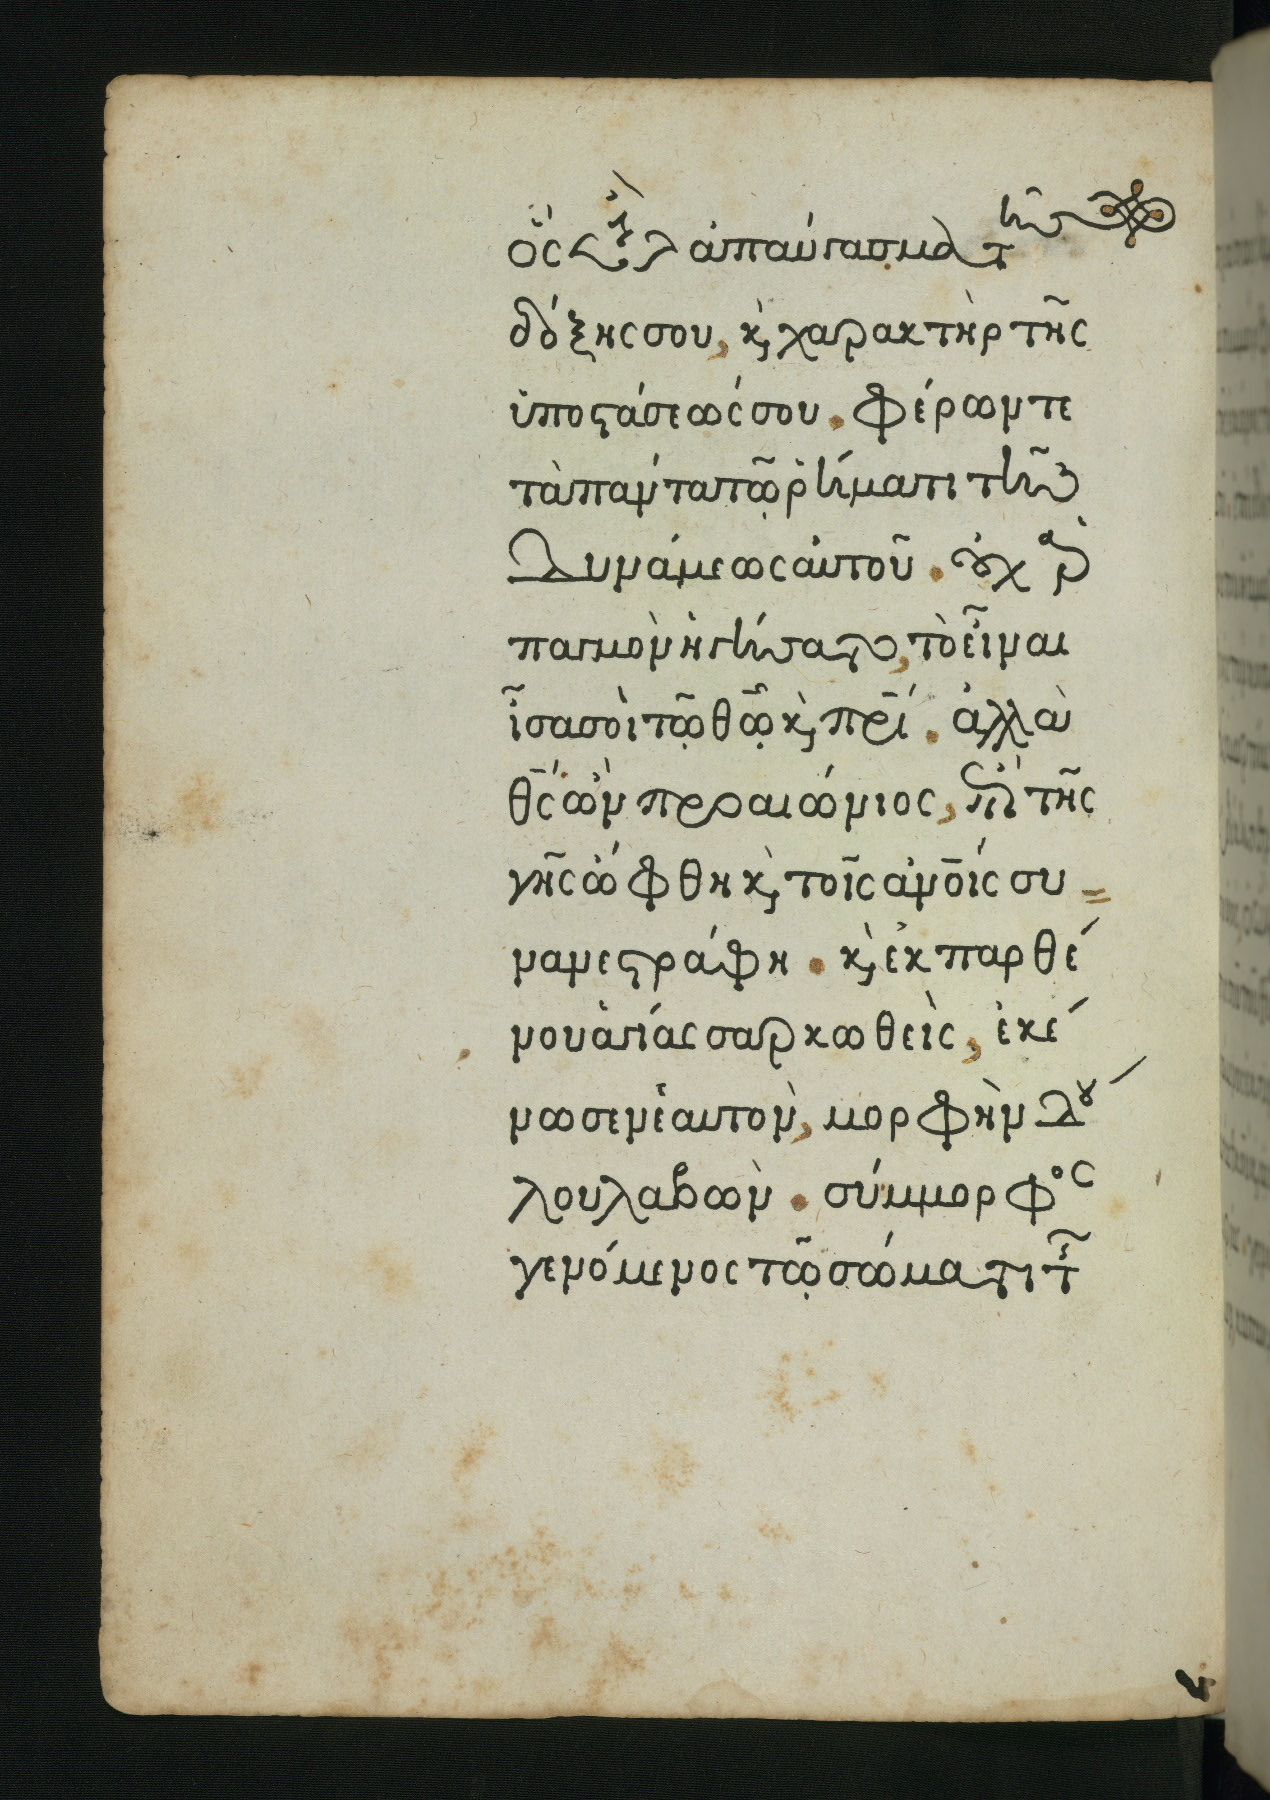 ὃς ὢν ἀπαύγασμα τῆς
δόξης σου, κ, χαρακτὴρ τῆς
ὑποστάσεώς σου. φέρων τε
τὰ πάντα τῷ ῥήματι τῆς
δυνάμεως αὐτοῦ. οὐχ ἁρ
παγμὸν ἡγήσατο, τὸ εἶναι
ἶσα σοὶ τῷ θῷ κ, πρί. ἀλλὰ
θς ὢν προαιώνιος, ἐπὶ τῆς
γῆς ὤφθη κ, τοῖς ἀνοις συ
νανεστράφη. κ, ἐκ παρθέ
νου ἁγίας σαρκωθεὶς, ἐκέ
νωσεν ἑαυτὸν, μορφὴν δού
λου λαβὼν. σύμμορφος
γενόμενος τῷ σώματι τῆς